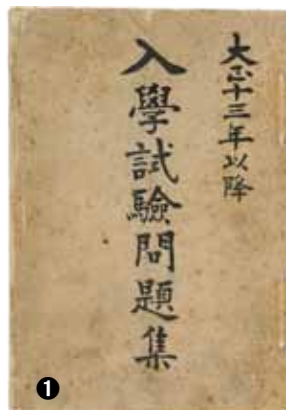 大正十三年以降
入學試驗問題集
❶